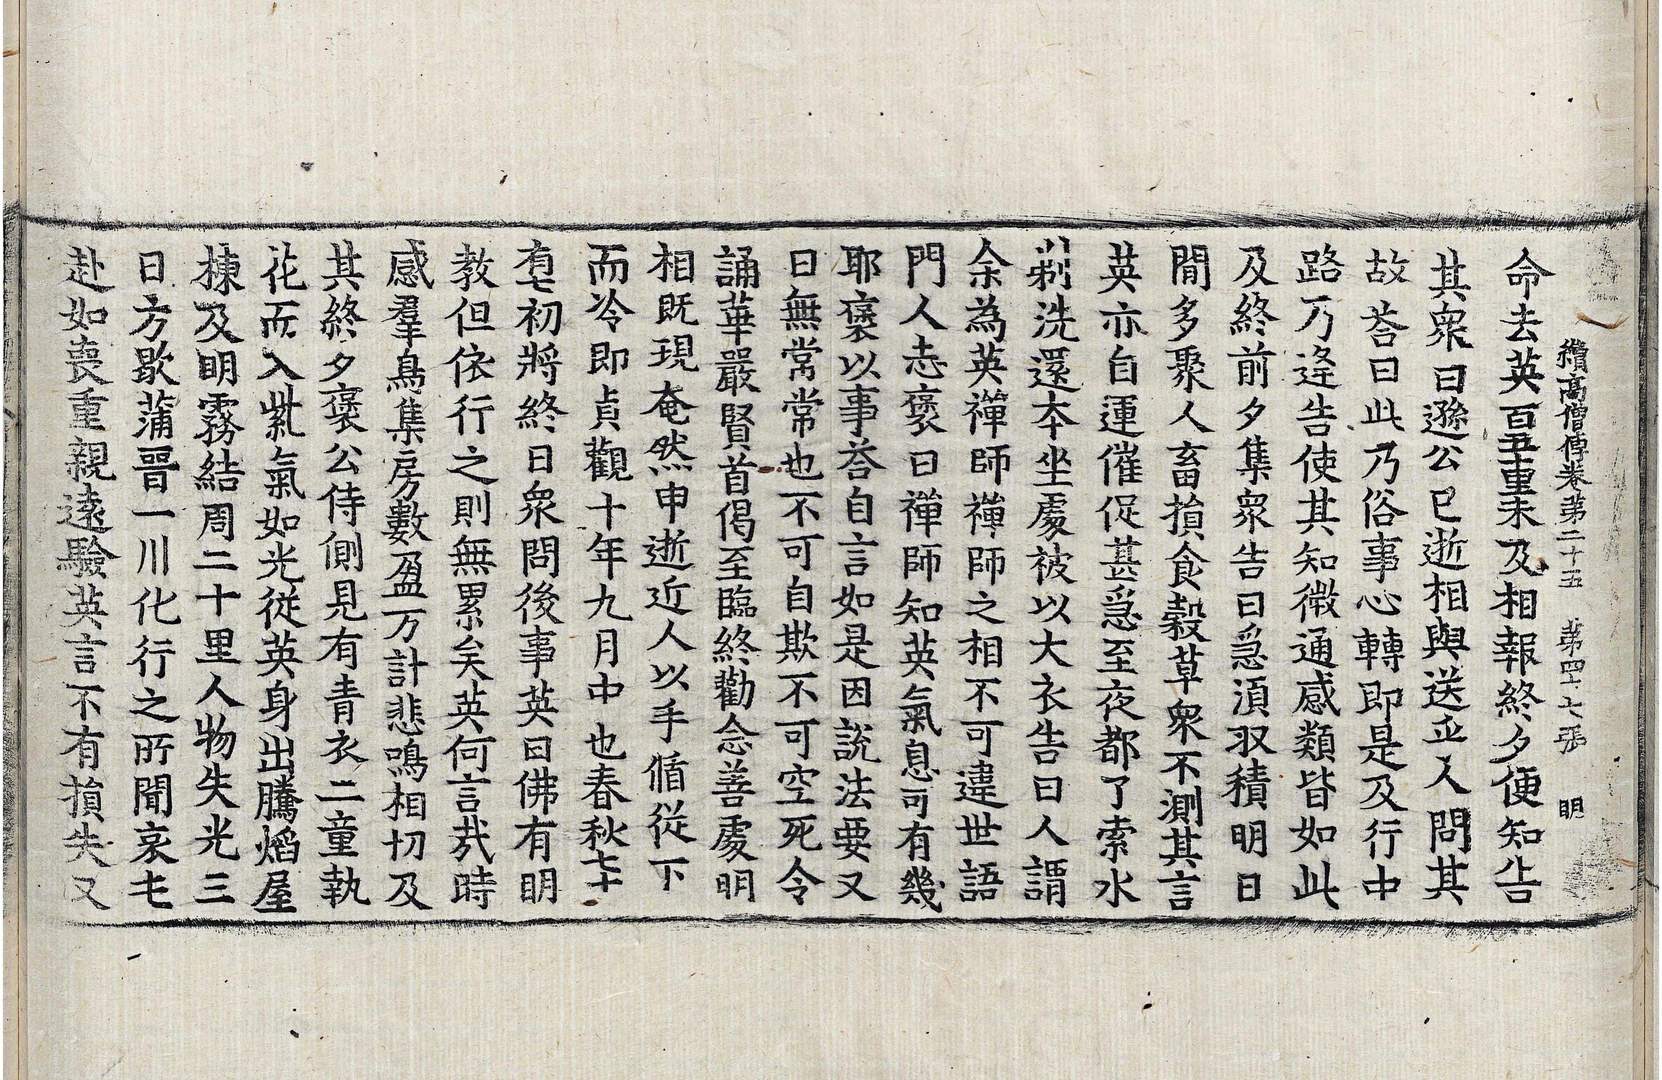 續高僧傳卷第二十五　第四十七張　明
命去英百五重未及相報終夕便知告
其衆曰遜公已逝相與送出人問其
故荅曰此乃俗事心轉即是及行中
路乃逢告使其知微通感類皆如此
及終前夕集衆告曰急湏収積明日
間多聚人畜損食穀草衆不測其言
英亦自運催促甚急至夜都了索水
剃洗還本坐處被以大衣告曰人謂
余為英禪師禪師之相不可違世語
門人志褒曰禪師知英氣息可有幾
耶褒以事荅自言如是因説法要又
曰無常常也不可自欺不可空死令
誦華嚴賢首偈至臨終勸念善處明
相既現奄然申逝近人以手循從下
而冷即貞觀十年九月中也春秋七十
有七初將終日衆問後事英曰佛有明
教但依行之則無累矣英何言哉時
感羣鳥集房數盈万計悲鳴相切及
其終夕褒公侍側見有青衣二童執
花而入紫氣如光從英身出騰焰屋
棟及明霧結周二十里人物失光三
日方歇蒲晋一川化行之所聞哀屯
赴如喪重親遠驗英言不有損失又